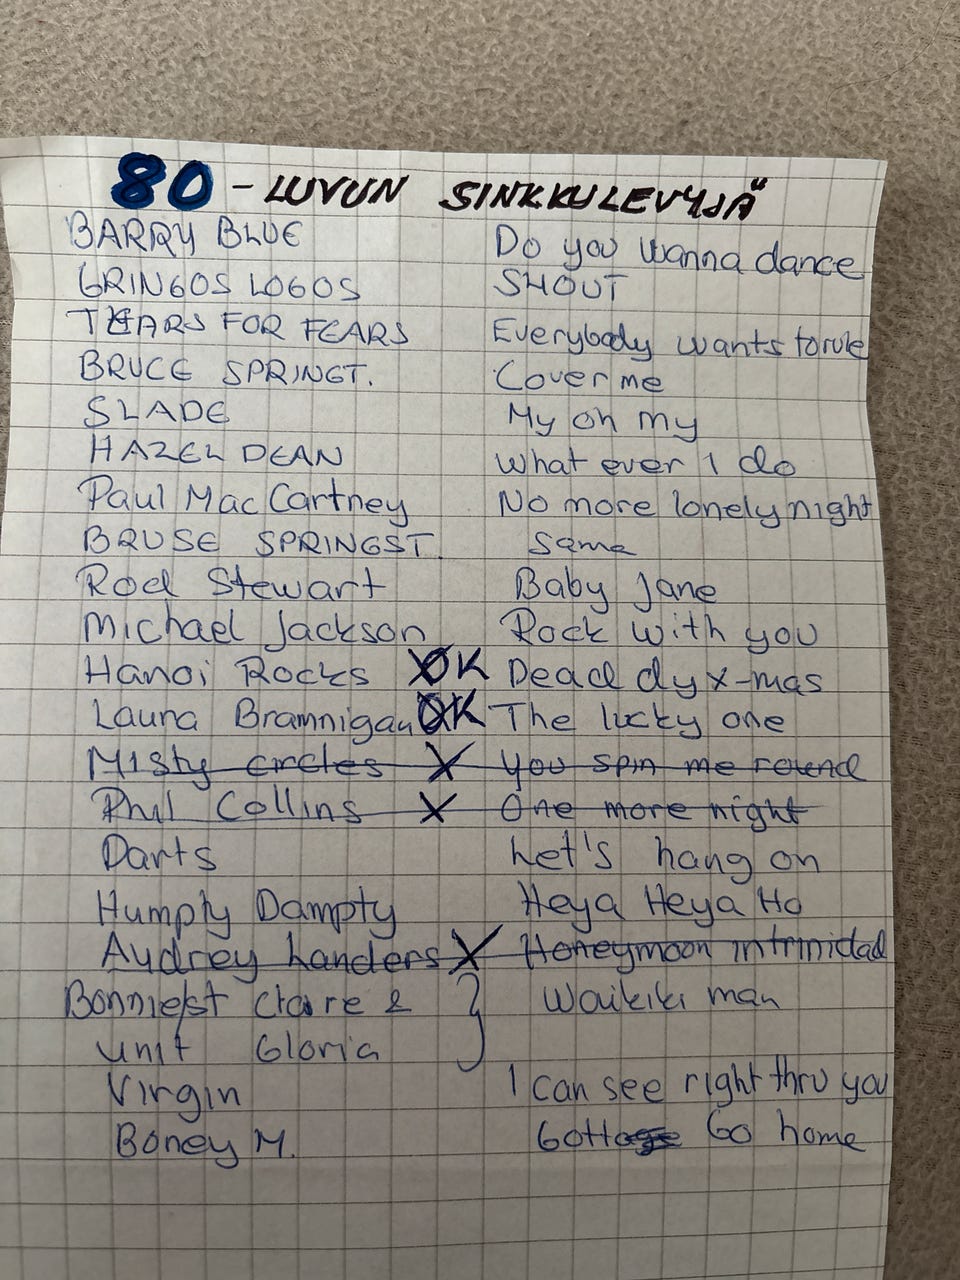 80 - LUVUN SINKKULEVYJÄ
BARRY BLUE Do you wanna dance
GRINGOS LOGOS SHOUT
TEARS FOR FEARS Everybody wants to rule
BRUCE SPRINGT. Cover me
SLADE My oh my
HAZEL DEAN What ever I do
Paul Mac Cartney No more lonely night
BRUSE SPRINGST. Same
Rod Stewart Baby Jane
Michael Jackson Rock with you
Hanoi Rocks XOK Dead dy x-mas
Laura Brannigan OK The lucky one
Misty circles X You spin me round
Phil Collins X One more night
Darts Let's hang on
Humpty Dampty Heya Heya Ho
Audrey Landers X Honeymoon in trinidad
Bonnie St Claire & } Waikiki man
unit Gloria
Virgin I can see right thru you
Boney M. Gotta Go home